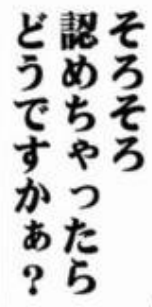 そろそろ
認めちゃったら
どうですかぁ?